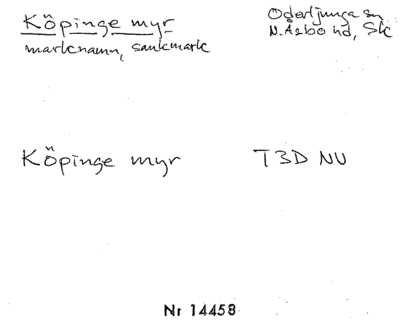 Köpinge myr
marknamn, sankmark
Oderljunga sn
N. Åsbo hd, Sk
Köpinge myr
T3D NV
Nr 14458